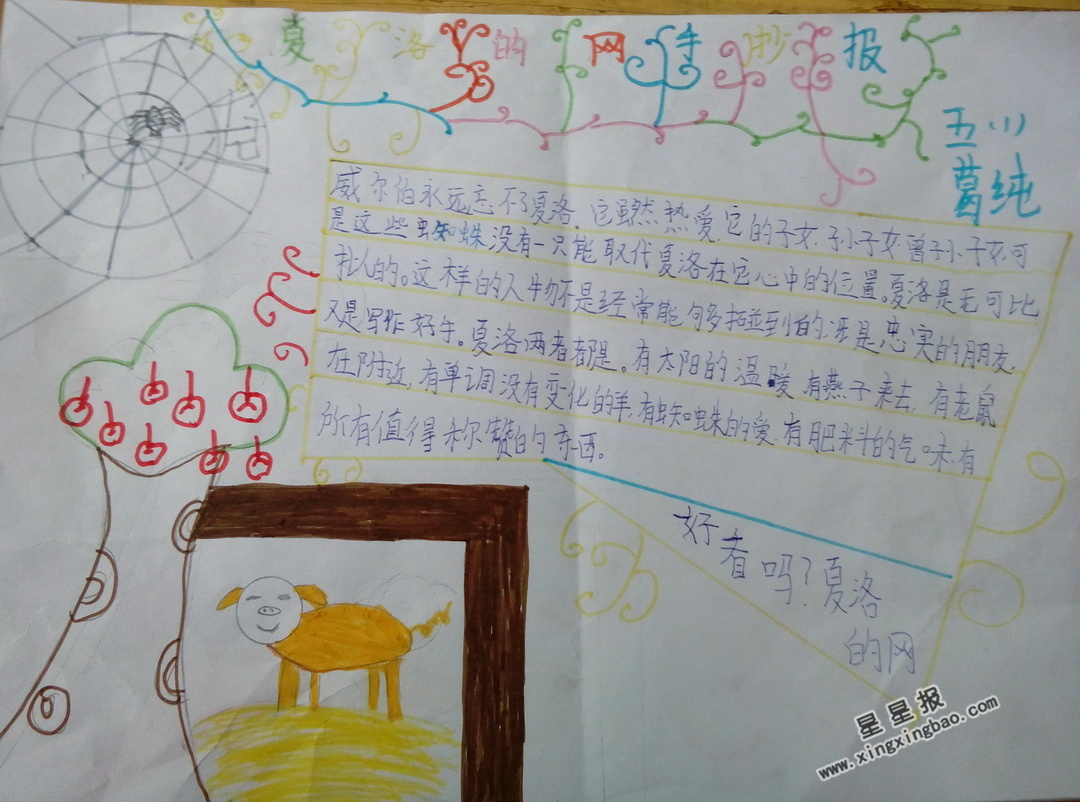 夏洛的网手抄报
五(1)
葛纯
威尔伯永远忘不了夏洛.它虽然热爱它的子女.孙子女.曾孙子女.可
是这些蜘蛛没有一只能取代夏洛在它心中的位置。夏洛是无可比
扎人的。这样的人物不是经常能够多碰到的.还是忠实的朋友.
又是写作好手。夏洛两者都是。有太阳的温暖.有燕子来去.有老鼠
在附近.有单调没有变化的羊.有蜘蛛的爱.有肥料的气味.有
所有值得称赞的东西。
好看吗?夏洛
的网
星星报
www.xingxingbao.com